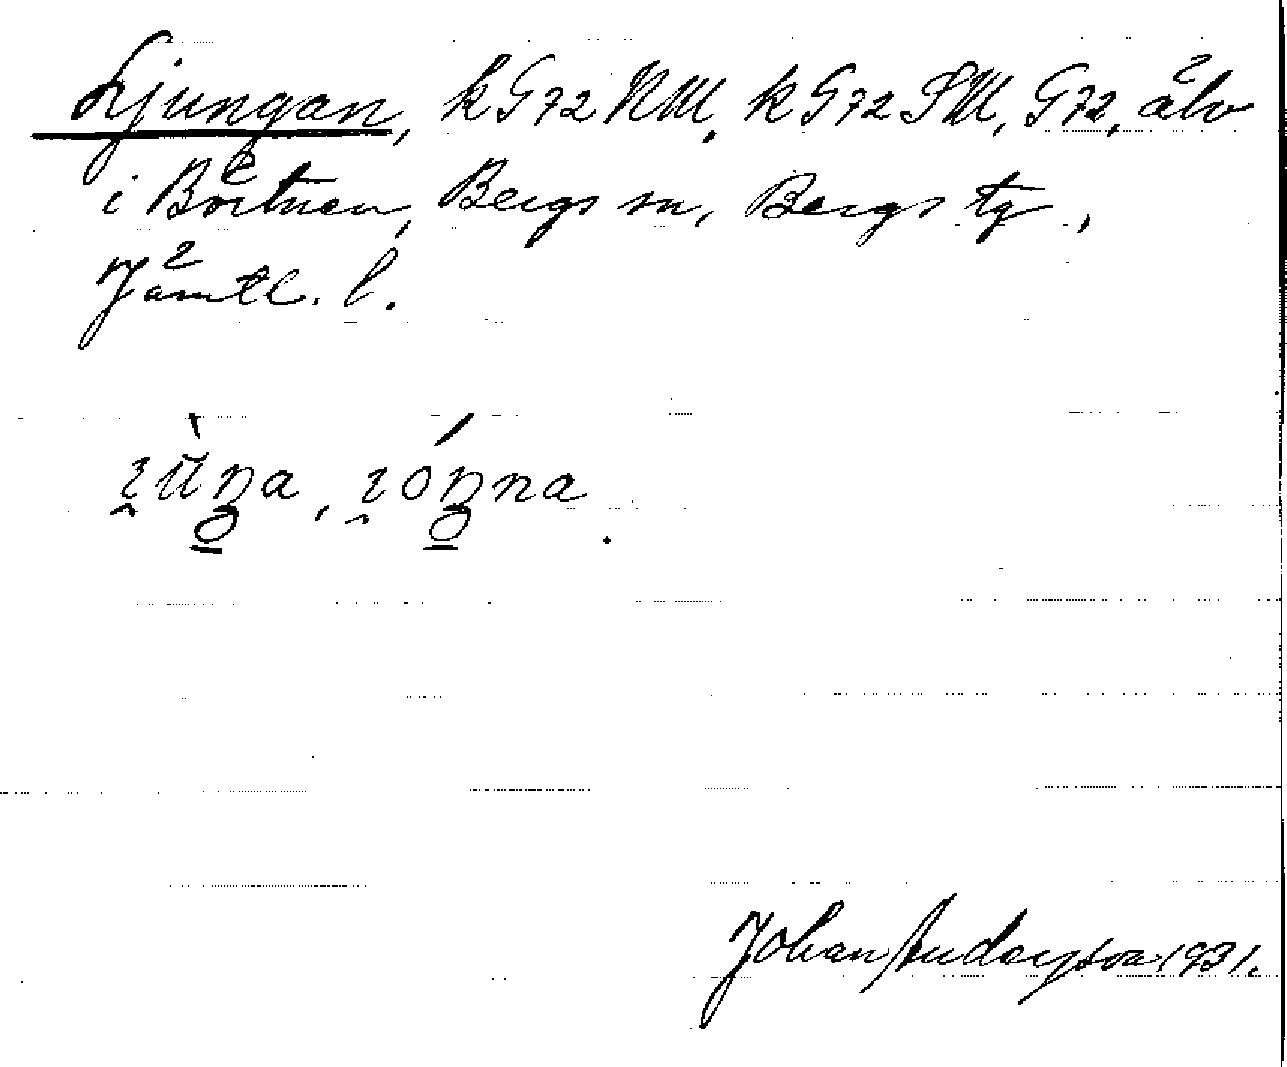 Ljungan, k G72 NM, k G72 SM, G72, älv
i Börtnen, Bergs sn, Bergs tg,
Jämtl. l.
Johan Anderyson 1931.